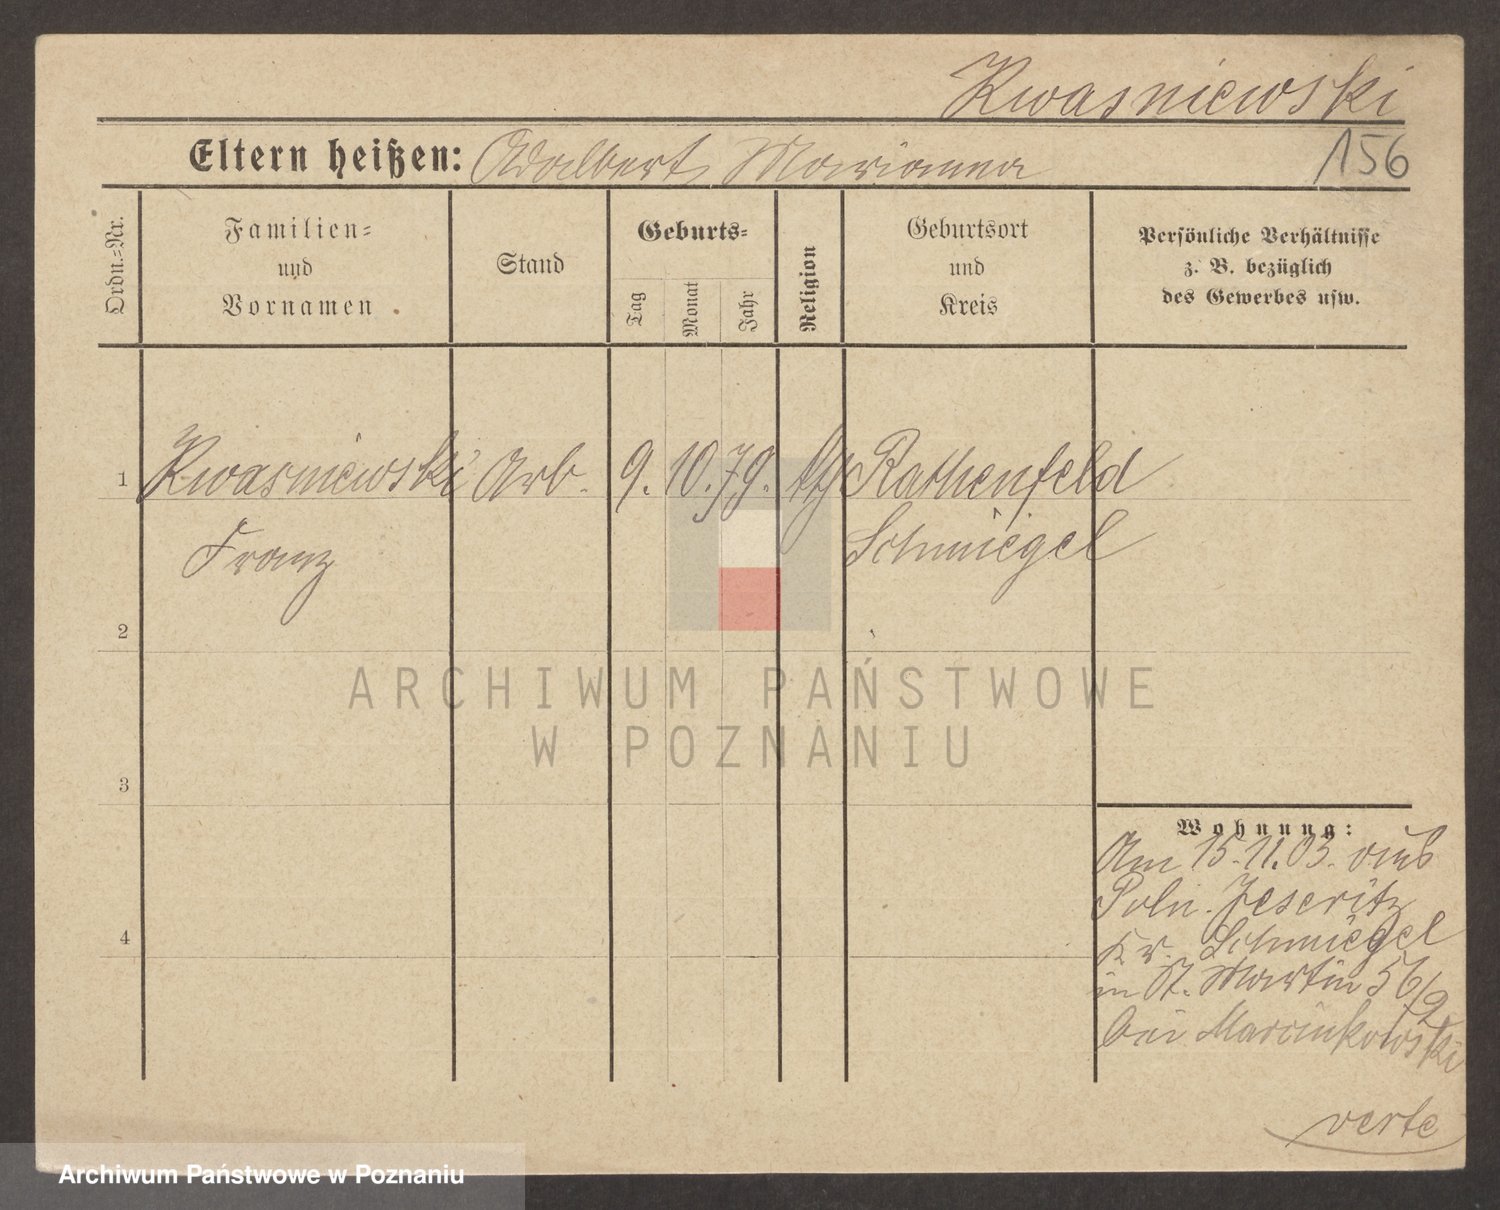 Kwasniewski
Eltern heißen: Adalbert, Marianna
156
Ordn.-Nr.
Familien-
und
Vornamen
Stand
Geburts-
Tag
Monat
Jahr
Religion
Geburtsort
und
Kreis
Persönliche Verhältnisse
z. B. bezüglich
des Gewerbes usw.
1
Kwasniewski Arb. 9. 10. 79. Rathenfeld
Franz
Schmiegel
2
3
4
Wohnung:
Am 15.11.03. aus
Poln. Jeseritz
Kr. Schmiegel
in St. Martin 56/2
bei Marcinkowski
verte
ARCHIWUM PAŃSTWOWE
W POZNANIU
Archiwum Państwowe w Poznaniu